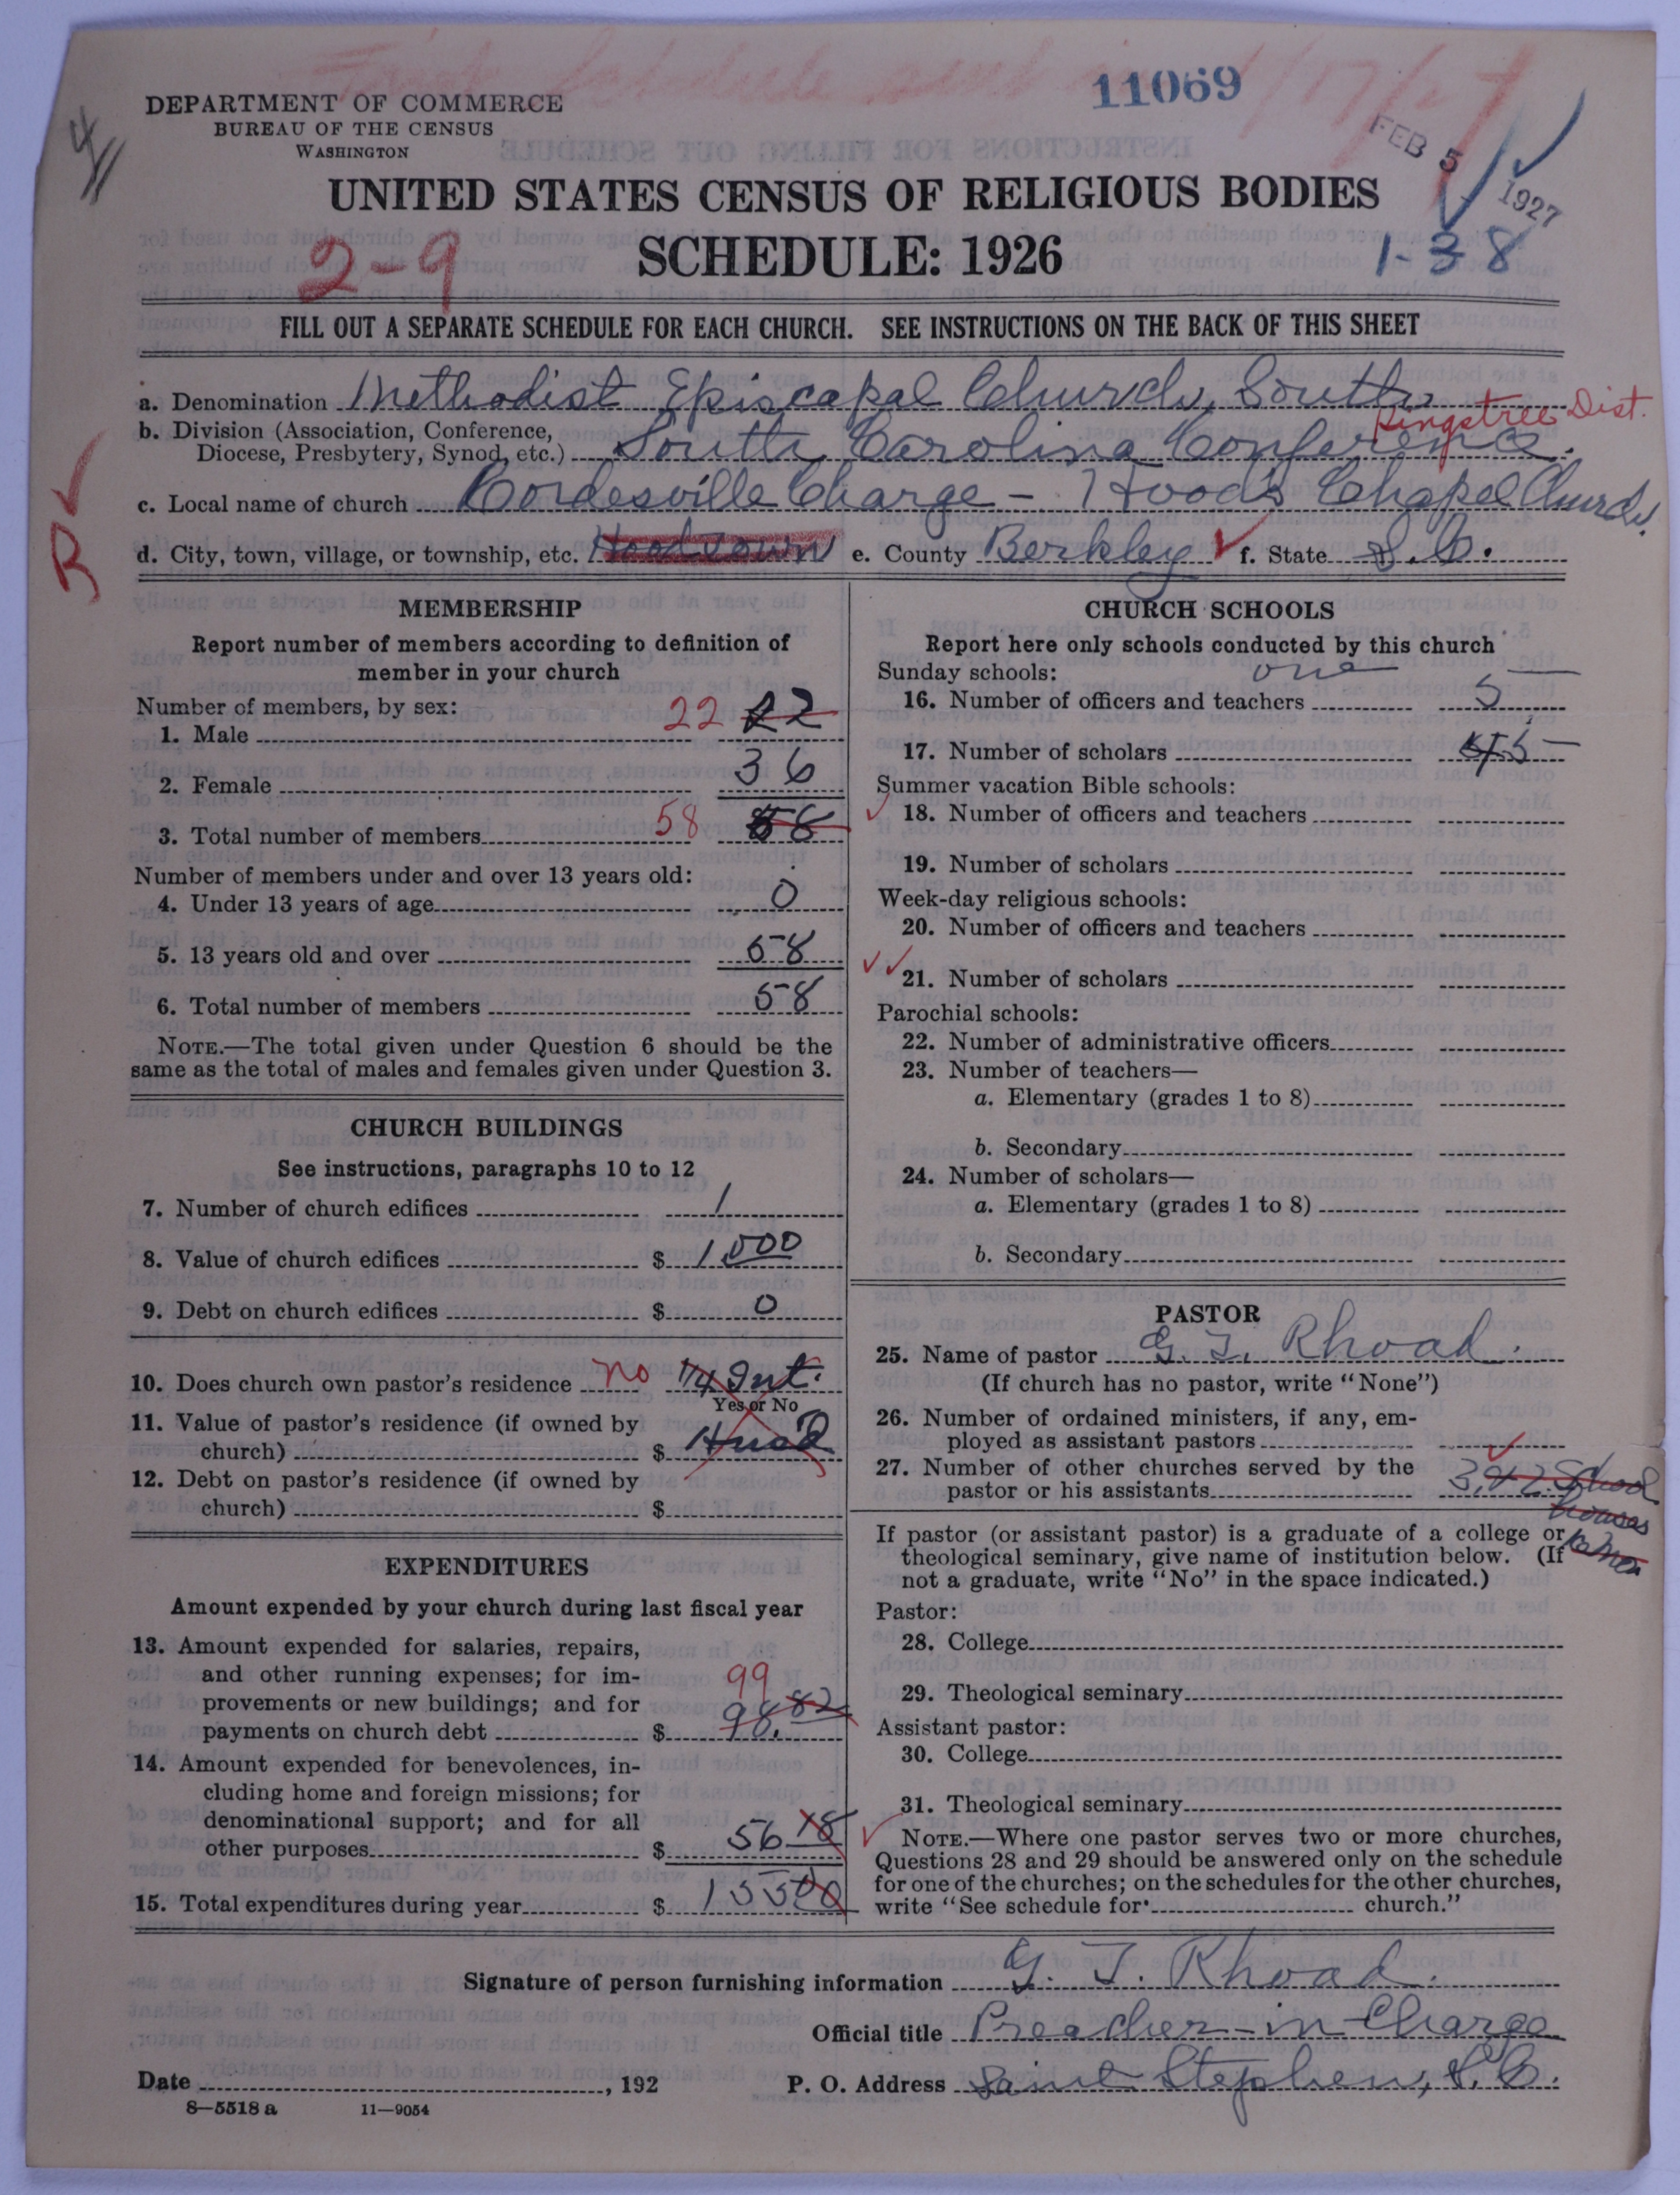 11069
DEPARTMENT OF COMMERCE
BUREAU OF THE CENSUS
WASHINGTON
FEB 5 1927
UNITED STATES CENSUS OF RELIGIOUS BODIES
SCHEDULE: 1926
2-9
1-38
FILL OUT A SEPARATE SCHEDULE FOR EACH CHURCH. SEE INSTRUCTIONS ON THE BACK OF THIS SHEET
a. Denomination Methodist Episcapal Church, South
Kingstree Dist.
b. Division (Association, Conference,
Diocese, Presbytery, Synod, etc.) South Carolina Conference.
c. Local name of church Cordesville Charge - Hood's Chapel Church.
R
d. City, town, village, or township, etc. e. County Berkley f. State S.C.
MEMBERSHIP
Report number of members according to definition of
member in your church
Number of members, by sex:
1. Male 22 22
2. Female 36
3. Total number of members 58 58
Number of members under and over 13 years old:
4. Under 13 years of age 0
5. 13 years old and over 58
6. Total number of members 58
NOTE.—The total given under Question 6 should be the
same as the total of males and females given under Question 3.
CHURCH BUILDINGS
See instructions, paragraphs 10 to 12
7. Number of church edifices 1
8. Value of church edifices $ 1,000
9. Debt on church edifices $ 0
10. Does church own pastor's residence no 1/4 Int.
Yes or No
11. Value of pastor's residence (if owned by
church) $
12. Debt on pastor's residence (if owned by
church) $
EXPENDITURES
Amount expended by your church during last fiscal year
13. Amount expended for salaries, repairs,
and other running expenses; for im-
provements or new buildings; and for
payments on church debt $ 99 98.82
14. Amount expended for benevolences, in-
cluding home and foreign missions; for
denominational support; and for all
other purposes $ 56 18
15. Total expenditures during year $ 155 00
CHURCH SCHOOLS
Report here only schools conducted by this church
Sunday schools: one
16. Number of officers and teachers 5
17. Number of scholars 45
Summer vacation Bible schools:
18. Number of officers and teachers
19. Number of scholars
Week-day religious schools:
20. Number of officers and teachers
21. Number of scholars
Parochial schools:
22. Number of administrative officers
23. Number of teachers—
a. Elementary (grades 1 to 8)
b. Secondary
24. Number of scholars—
a. Elementary (grades 1 to 8)
b. Secondary
PASTOR
25. Name of pastor G. T. Rhoad.
(If church has no pastor, write "None")
26. Number of ordained ministers, if any, em-
ployed as assistant pastors
27. Number of other churches served by the
pastor or his assistants 3, & 2 School houses
If pastor (or assistant pastor) is a graduate of a college or
theological seminary, give name of institution below. (If
not a graduate, write "No" in the space indicated.)
Pastor:
28. College
29. Theological seminary
Assistant pastor:
30. College
31. Theological seminary
NOTE.—Where one pastor serves two or more churches,
Questions 28 and 29 should be answered only on the schedule
for one of the churches; on the schedules for the other churches,
write "See schedule for church."
Signature of person furnishing information G. T. Rhoad.
Official title Preacher-in-Charge
Date , 192 P. O. Address Saint Stephen, S.C.
8—5518 a 11—9054